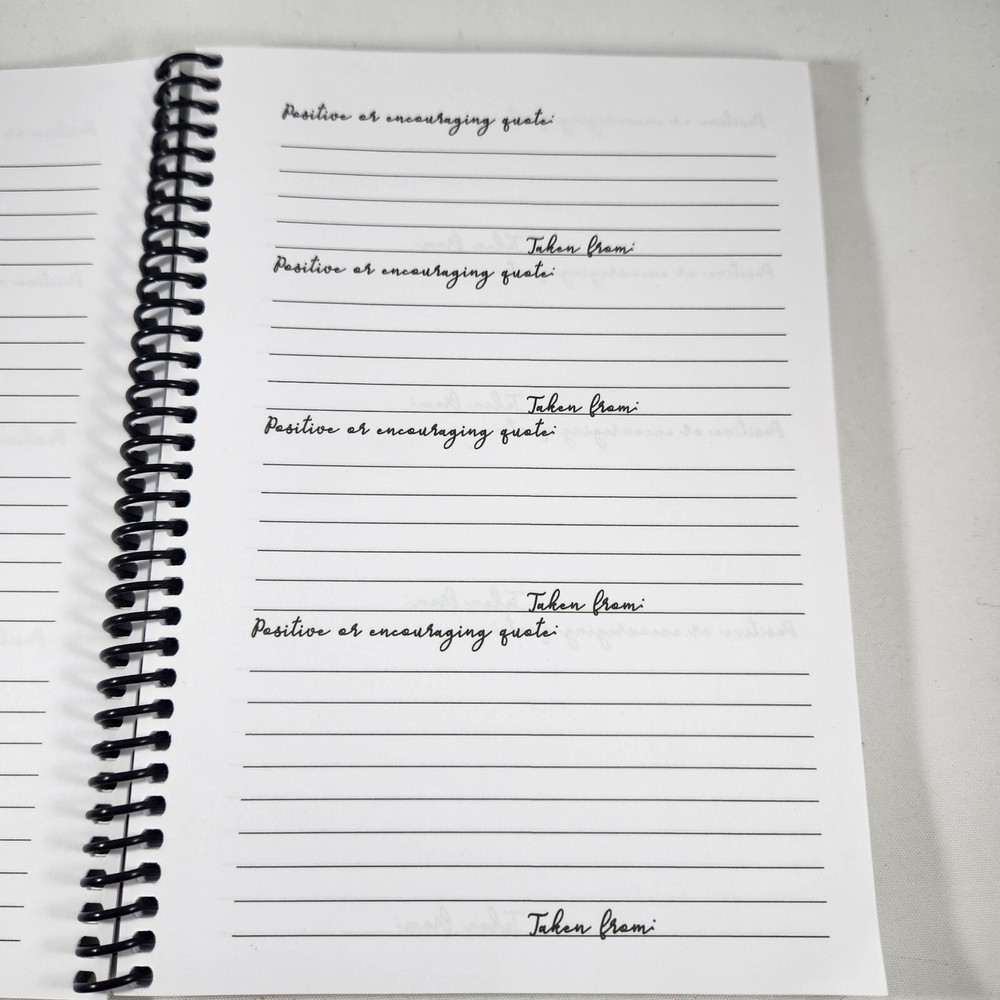 Positive or encouraging quote:
Taken from:
Positive or encouraging quote:
Taken from:
Positive or encouraging quote:
Taken from:
Positive or encouraging quote:
Taken from: